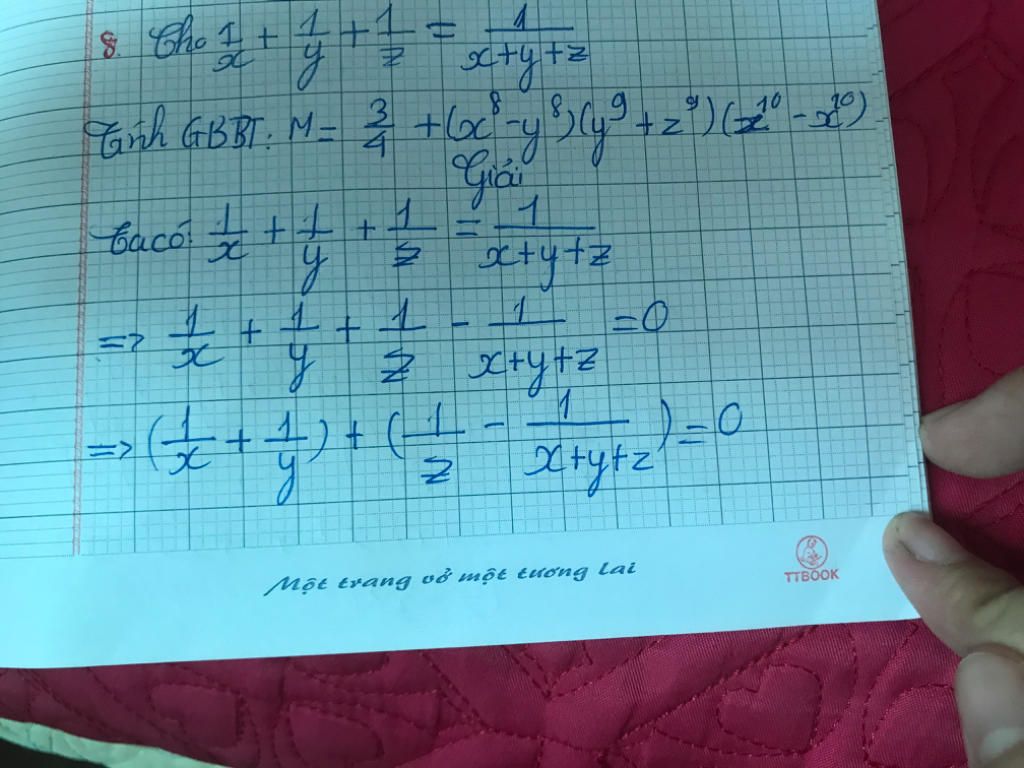 8. Cho 1/x + 1/y + 1/z = 1/(x+y+z)
Tính GBBT: M = 3/4 + (x⁸ - y⁸)(y⁹ + z⁹)(x¹⁰ - x¹⁰)
Giải
Ta có: 1/x + 1/y + 1/z = 1/(x+y+z)
=> 1/x + 1/y + 1/z - 1/(x+y+z) = 0
=> (1/x + 1/y) + (1/z - 1/(x+y+z)) = 0
Một trang vở một tương lai
TTBOOK